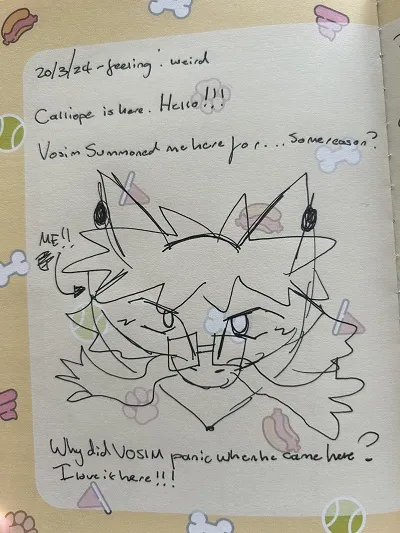 20/3/24 - feeling: weird
Calliope is here. Hello!!!
Vosim Summoned me here for... Some reason?
ME!!
Why did VOSIM panic when he came here?
I love it here!!!